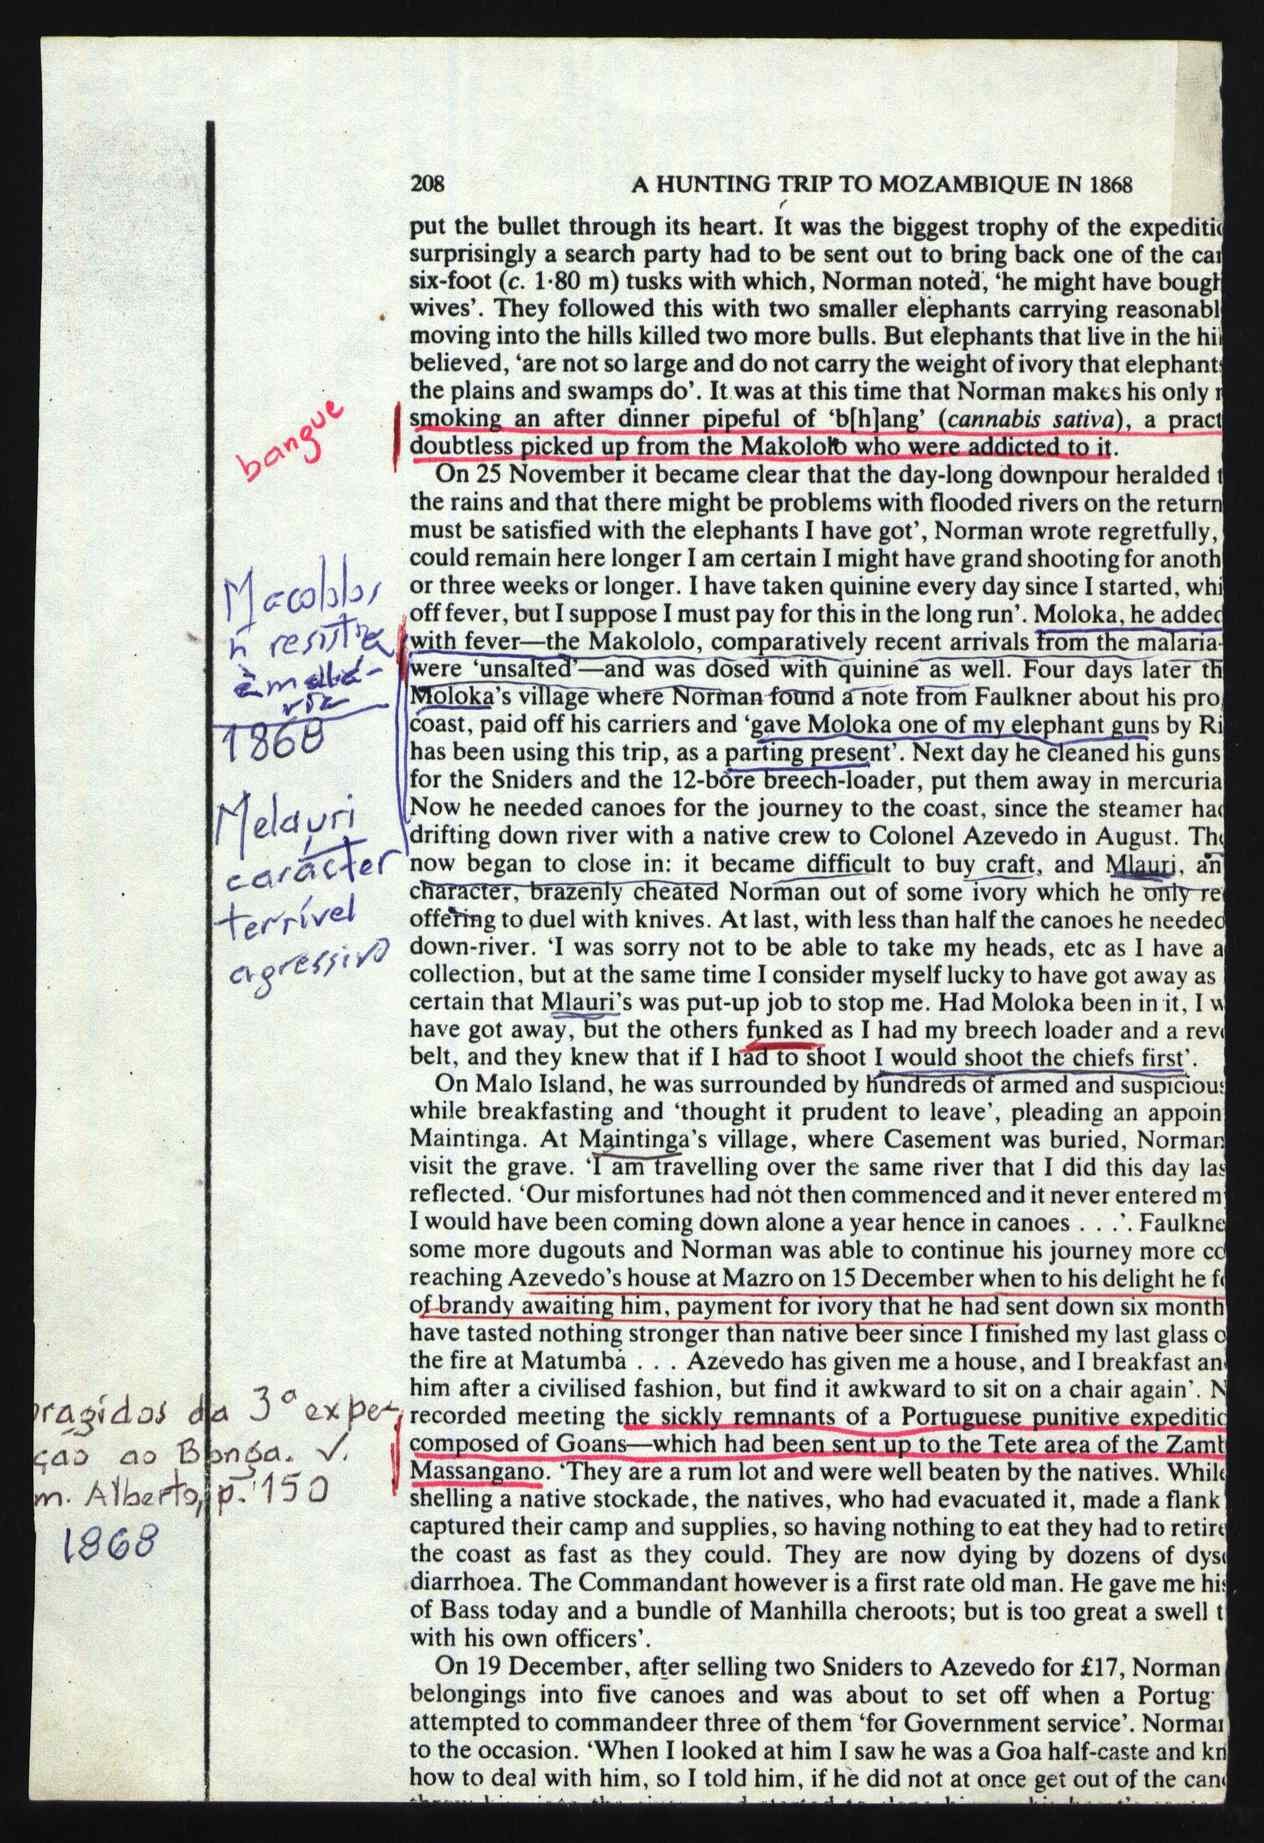 208 A HUNTING TRIP TO MOZAMBIQUE IN 1868
put the bullet through its heart. It was the biggest trophy of the expeditio
surprisingly a search party had to be sent out to bring back one of the
six-foot (c. 1·80 m) tusks with which, Norman noted, ‘he might have bough
wives’. They followed this with two smaller elephants carrying reasonabl
moving into the hills killed two more bulls. But elephants that live in the hi
believed, ‘are not so large and do not carry the weight of ivory that elephants
the plains and swamps do’. It was at this time that Norman makes his only
smoking an after dinner pipeful of ‘b[h]ang’ (cannabis sativa), a pract
doubtless picked up from the Makololo who were addicted to it.
bangue
On 25 November it became clear that the day-long downpour heralded t
the rains and that there might be problems with flooded rivers on the return
must be satisfied with the elephants I have got’, Norman wrote regretfully,
could remain here longer I am certain I might have grand shooting for anoth
or three weeks or longer. I have taken quinine every day since I started, whi
off fever, but I suppose I must pay for this in the long run’. Moloka, he added
with fever—the Makololo, comparatively recent arrivals from the malaria-
were ‘unsalted’—and was dosed with quinine as well. Four days later th
Moloka’s village where Norman found a note from Faulkner about his pro
coast, paid off his carriers and ‘gave Moloka one of my elephant guns by Ri
has been using this trip, as a parting present’. Next day he cleaned his guns
for the Sniders and the 12-bore breech-loader, put them away in mercuria
Now he needed canoes for the journey to the coast, since the steamer had
drifting down river with a native crew to Colonel Azevedo in August. The
now began to close in: it became difficult to buy craft, and Mlauri, an
character, brazenly cheated Norman out of some ivory which he only re
offering to duel with knives. At last, with less than half the canoes he needed
down-river. ‘I was sorry not to be able to take my heads, etc as I have a
collection, but at the same time I consider myself lucky to have got away as
certain that Mlauri’s was put-up job to stop me. Had Moloka been in it, I w
have got away, but the others funked as I had my breech loader and a rev
belt, and they knew that if I had to shoot I would shoot the chiefs first’.
1868
Melauri
carácter
terrível
agressivo
On Malo Island, he was surrounded by hundreds of armed and suspicious
while breakfasting and ‘thought it prudent to leave’, pleading an appoin
Maintinga. At Maintinga’s village, where Casement was buried, Norman
visit the grave. ‘I am travelling over the same river that I did this day las
reflected. ‘Our misfortunes had not then commenced and it never entered m
I would have been coming down alone a year hence in canoes . . .’. Faulkne
some more dugouts and Norman was able to continue his journey more co
reaching Azevedo’s house at Mazro on 15 December when to his delight he f
of brandy awaiting him, payment for ivory that he had sent down six month
have tasted nothing stronger than native beer since I finished my last glass o
the fire at Matumba . . . Azevedo has given me a house, and I breakfast an
him after a civilised fashion, but find it awkward to sit on a chair again’. N
recorded meeting the sickly remnants of a Portuguese punitive expeditio
composed of Goans—which had been sent up to the Tete area of the Zamb
Massangano. ‘They are a rum lot and were well beaten by the natives. While
shelling a native stockade, the natives, who had evacuated it, made a flank
captured their camp and supplies, so having nothing to eat they had to retire
the coast as fast as they could. They are now dying by dozens of dyse
diarrhoea. The Commandant however is a first rate old man. He gave me his
of Bass today and a bundle of Manhilla cheroots; but is too great a swell t
with his own officers’.
ragidos da 3ª expe-
ção ao Bonga. v.
m. Alberto, p. 150
1868
On 19 December, after selling two Sniders to Azevedo for £17, Norman
belongings into five canoes and was about to set off when a Portug
attempted to commandeer three of them ‘for Government service’. Norman
to the occasion. ‘When I looked at him I saw he was a Goa half-caste and kn
how to deal with him, so I told him, if he did not at once get out of the can